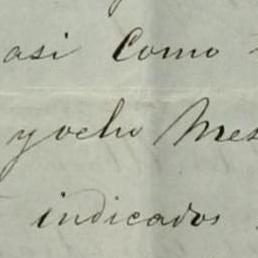 asi Como
y ocho Mes
indicados